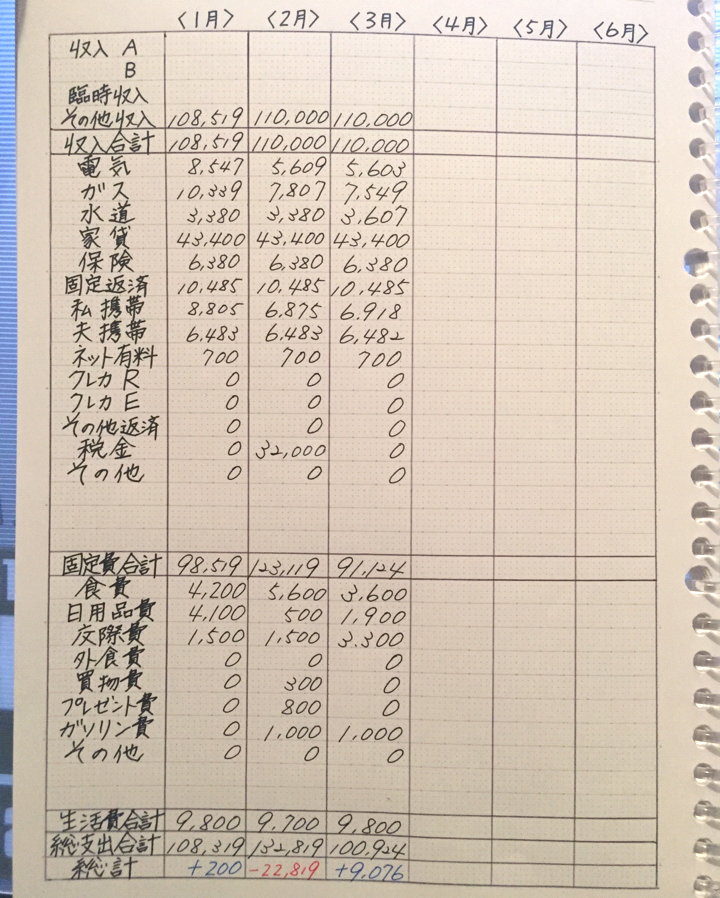 〈1月〉 〈2月〉 〈3月〉 〈4月〉 〈5月〉 〈6月〉
収入 A
B
臨時収入
その他収入 108,519 110,000 110,000
収入合計 108,519 110,000 110,000
電気 8,547 5,609 5,603
ガス 10,339 7,807 7,549
水道 3,380 3,380 3,607
家賃 43,400 43,400 43,400
保険 6,380 6,380 6,380
固定返済 10,485 10,485 10,485
私携帯 8,805 6,875 6,918
夫携帯 6,483 6,483 6,482
ネット有料 700 700 700
クレカ R 0 0 0
クレカ E 0 0 0
その他返済 0 0 0
税金 0 32,000 0
その他 0 0 0
固定費合計 98,519 123,119 91,124
食費 4,200 5,600 3,600
日用品費 4,100 500 1,900
交際費 1,500 1,500 3.300
外食費 0 0 0
買物費 0 300 0
プレゼント費 0 800 0
ガソリン費 0 1,000 1,000
その他 0 0 0
生活費合計 9,800 9.700 9,800
総支出合計 108,319 132,819 100,924
総計 +200 -22,819 +9,076